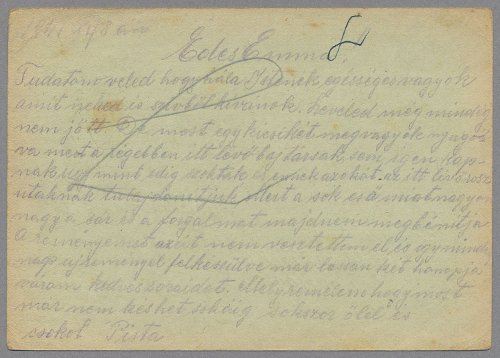 1941 X/8 án
Édes Emma!
Tudatom veled hogy hála Istenek egésséges vagyok
amit neked is szivből kivánok. Leveled még mindig
nem jött De most egy kicsikét megvagyok nyugod
va mert a régebben itt lévő bajtársak sem igen kap
nak úgy mint edig szoktak és ennek az okát az itt lévő rosz
utaknak tulajdonitjuk Mert a sok eső miatt nagyon
nagy a sár és a forgalmat majdnem megbénitja
A reményemet azért nem vesztettem el és egy minden
napi ujreményel felkészülve már lassan két honapja
várom kedves soraidat. Mely remélem hogy most
már nem késhet sokáig sokszor ölel és
csokol Pista